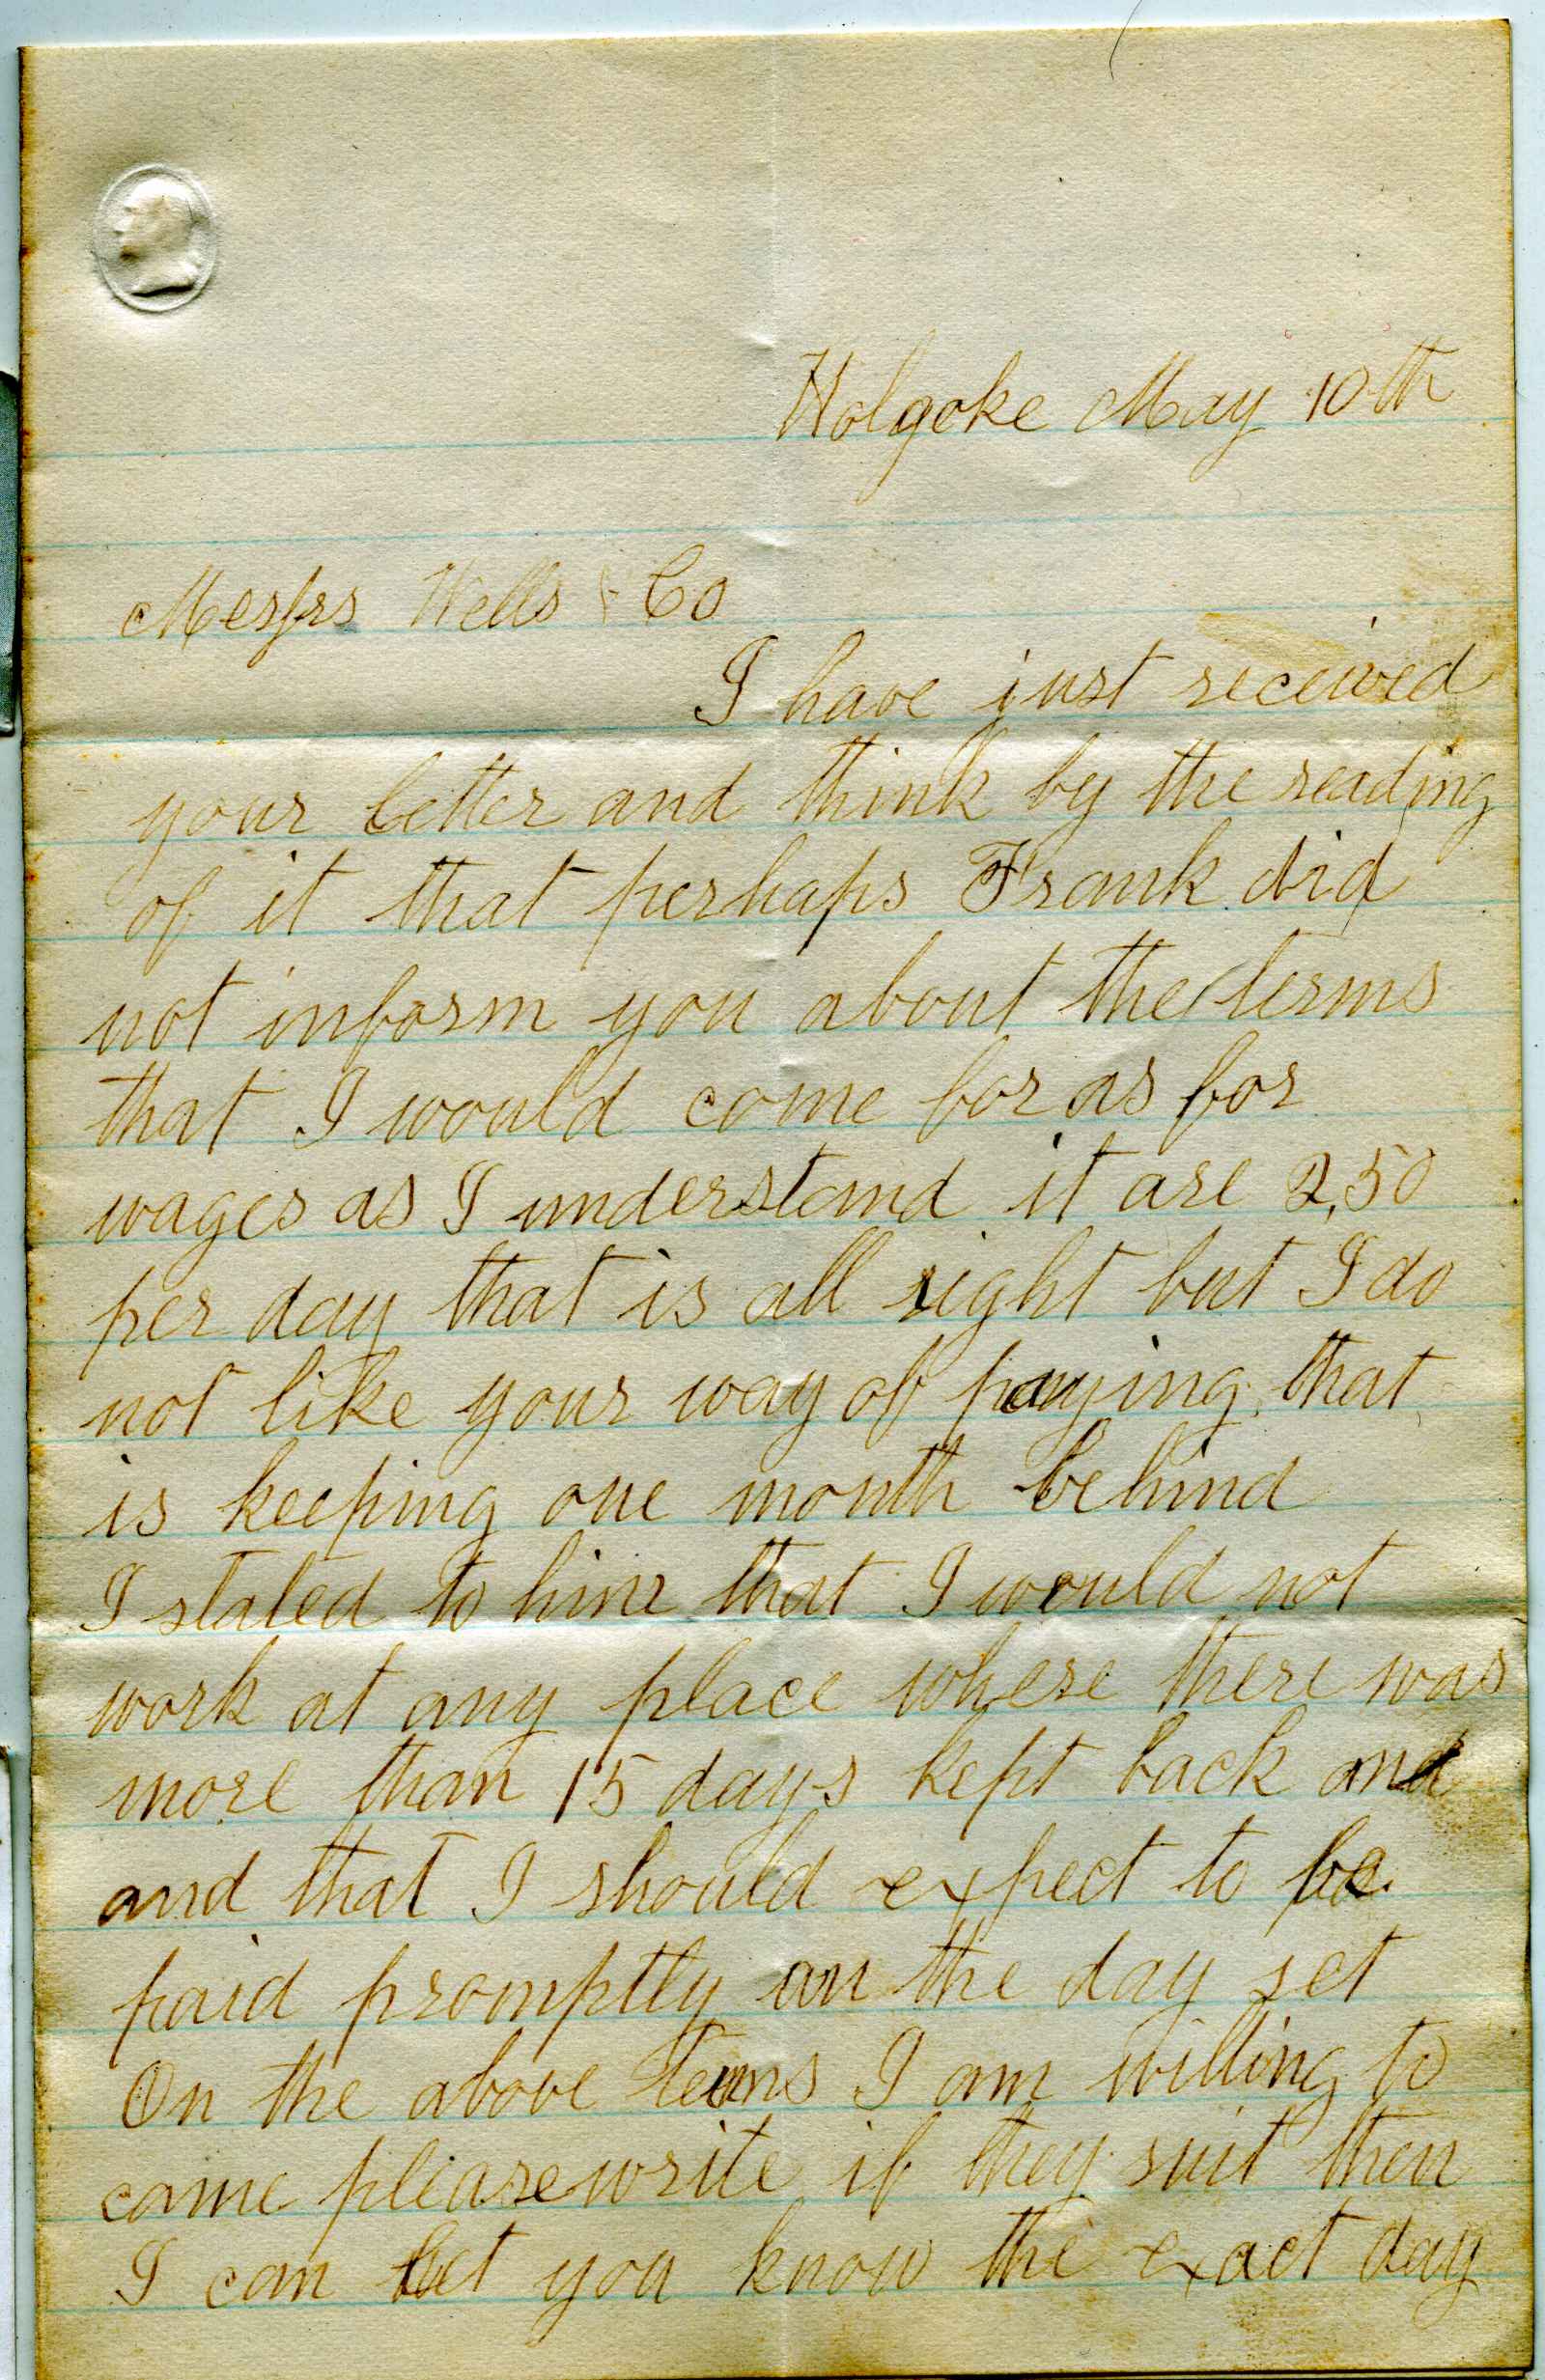 Holyoke May 10th
Messrs Wells & Co
I have just received
your letter and think by the reading
of it that perhaps Frank did
not inform you about the terms
that I would come for as for
wages as I understand it are 2,50
per day that is all right but I do
not like your way of paying that
is keeping one month behind
I stated to him that I would not
work at any place where there was
more than 15 days kept back and
and that I should expect to be
paid promptly on the day set
On the above terms I am willing to
come please write if they suit then
I can let you know the exact day